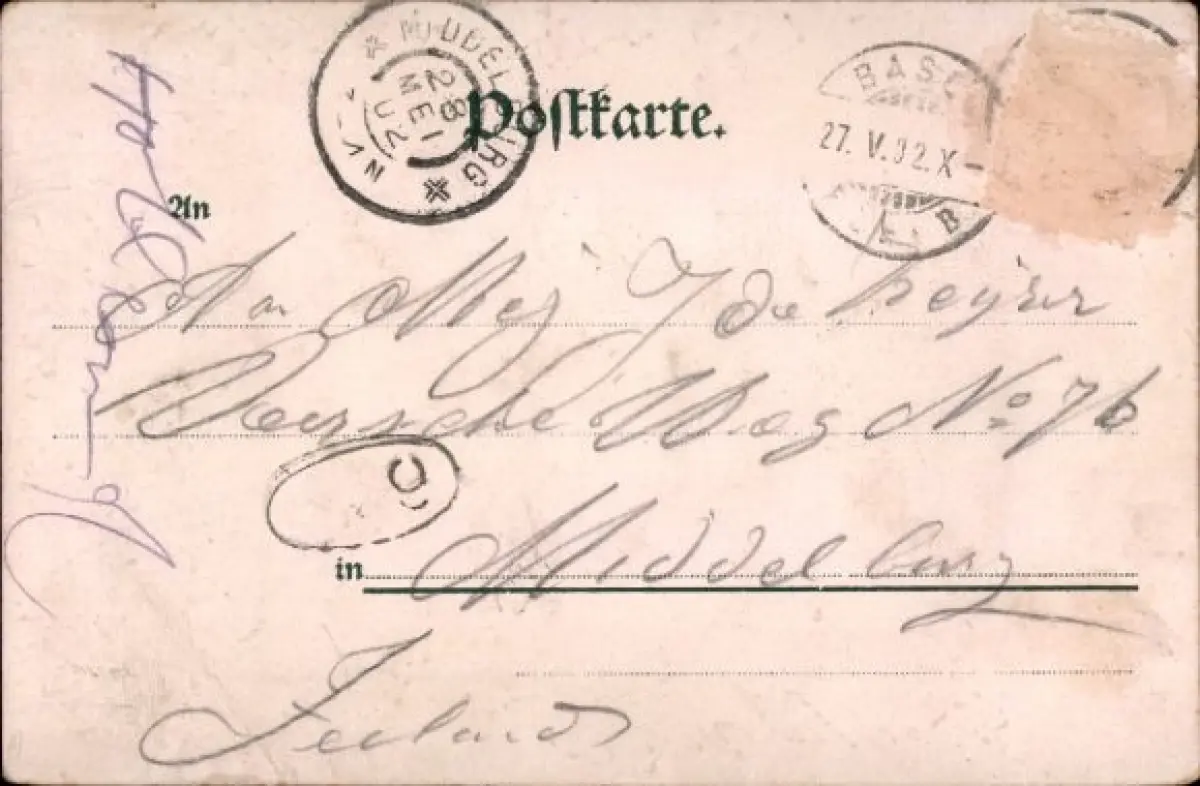 MIDDELBURG
28 MEI 02
Postkarte.
BASEL
27. V. 02. X-
An
Aan Mej J de Keijzer
Veersche Weg No 76
in Middelburg
Zeeland